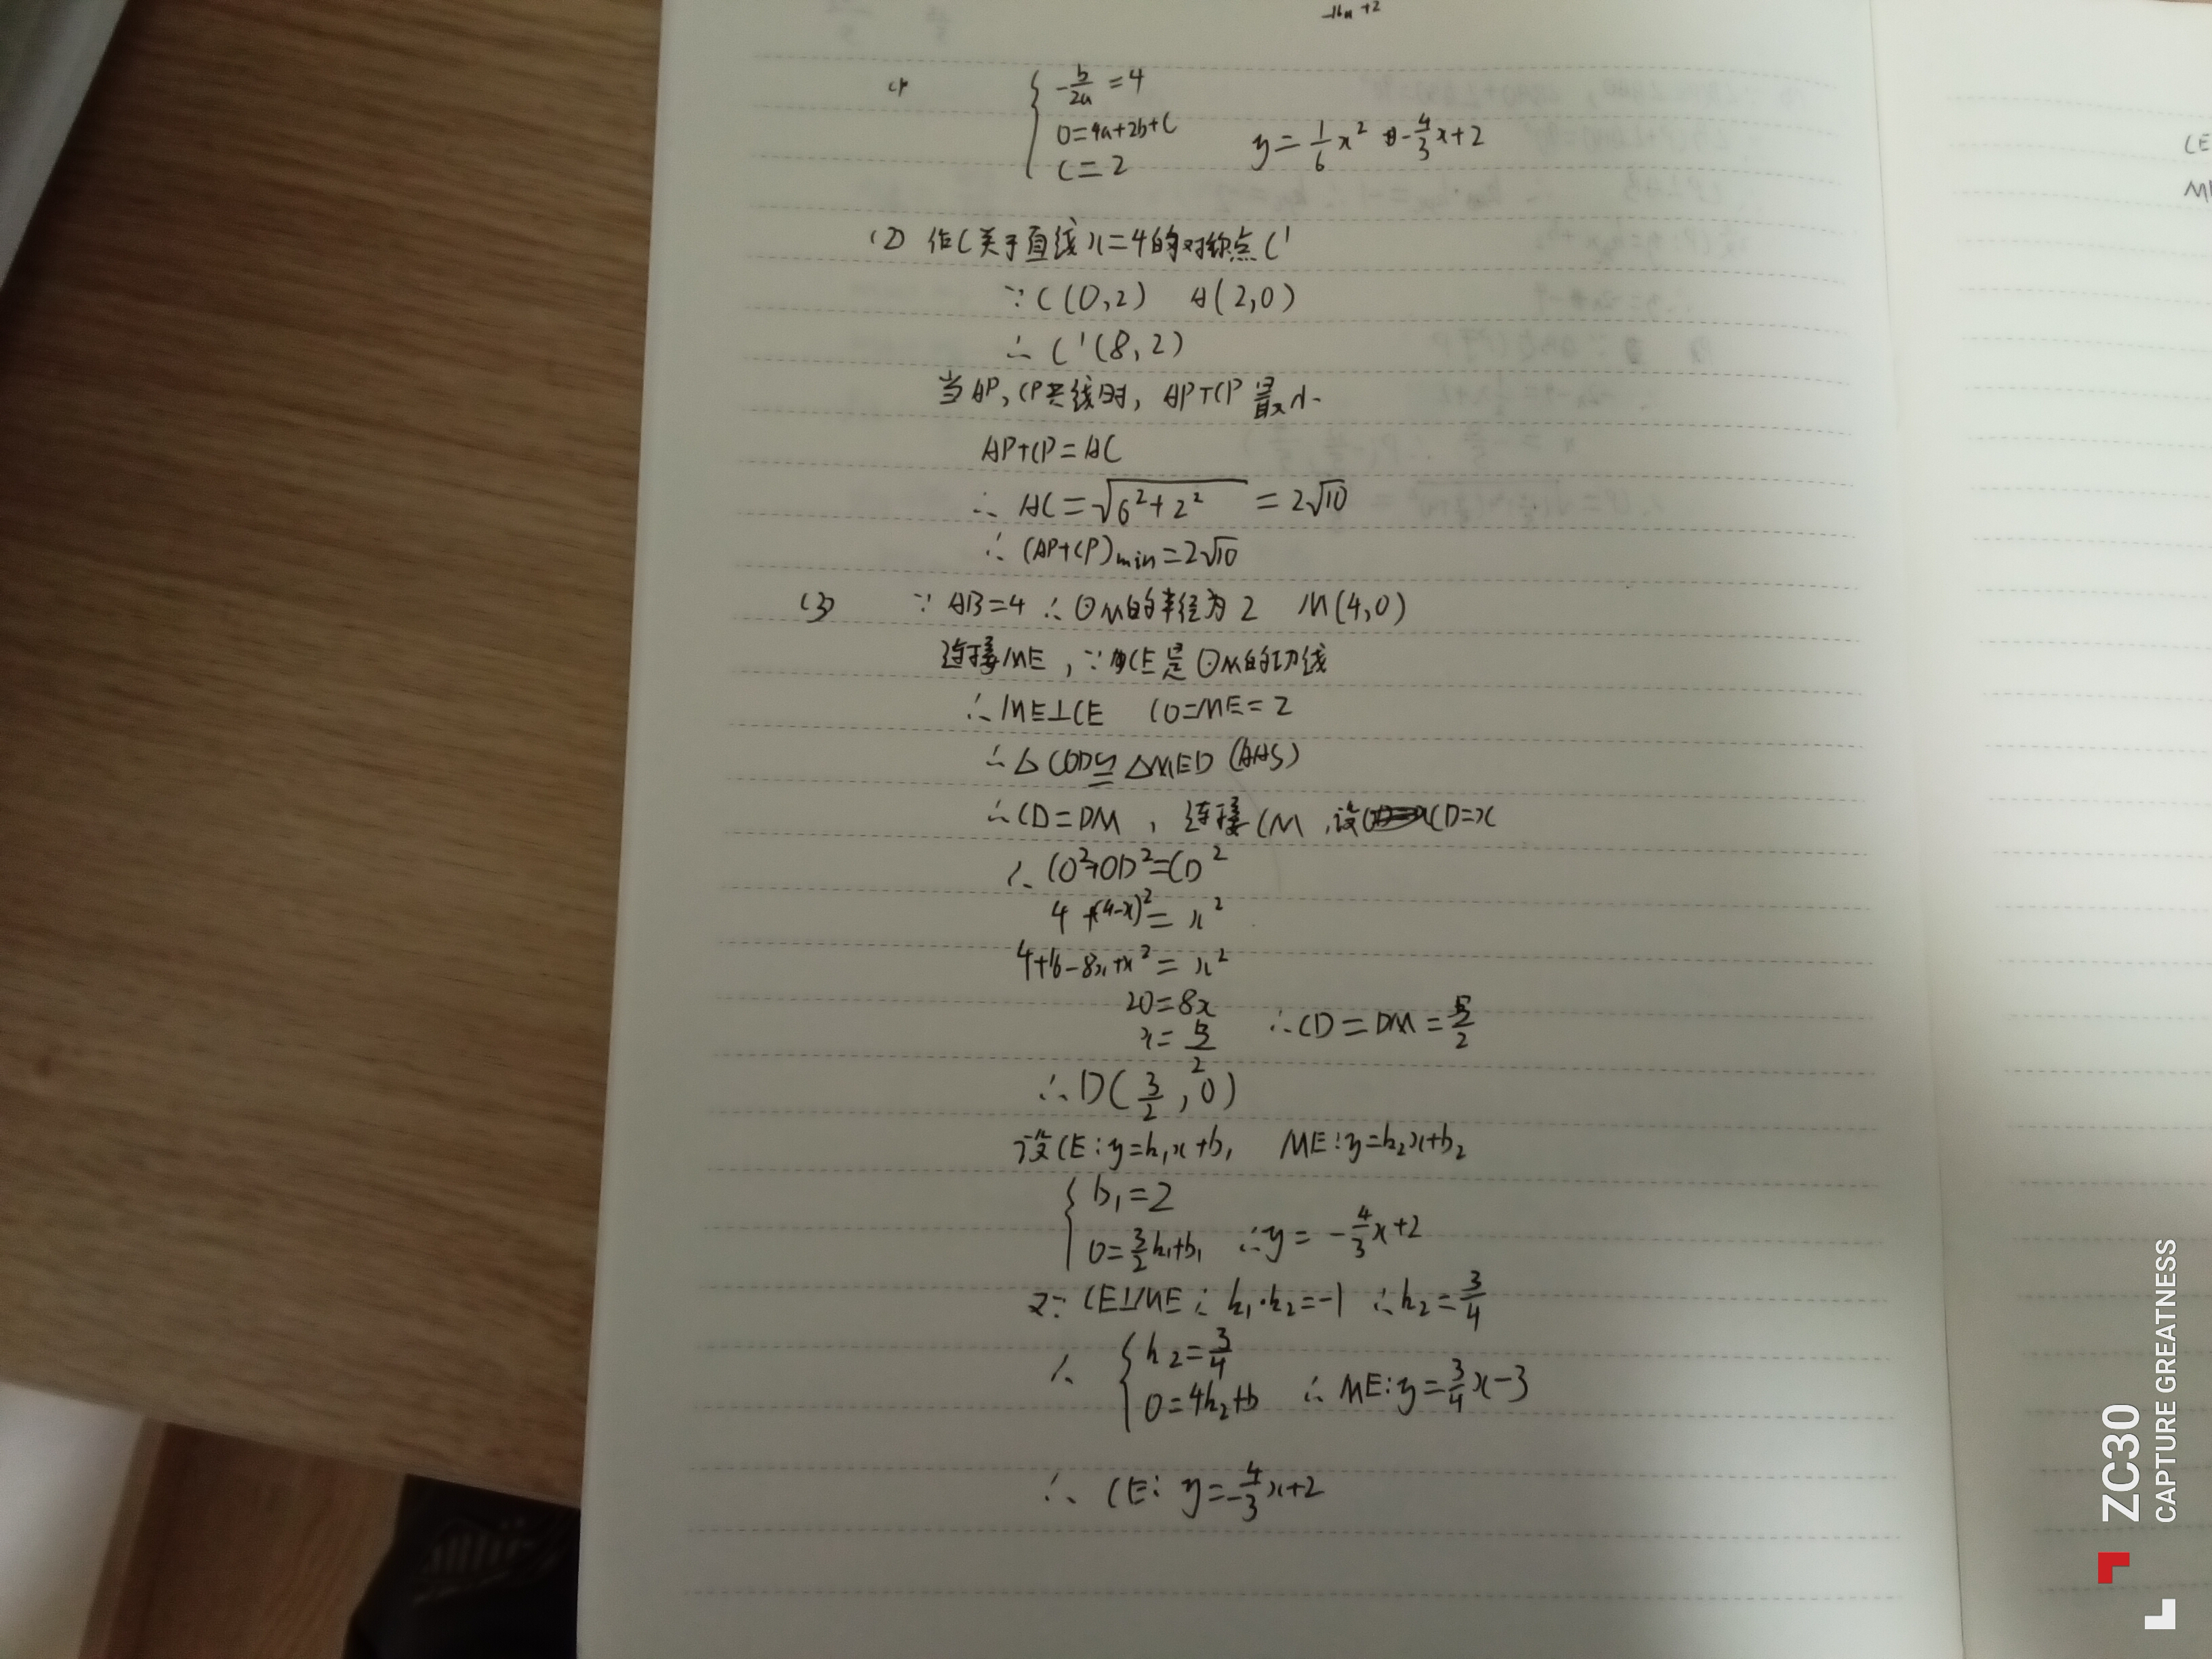 -16a+2
(1) { -b/2a = 4
0=4a+2b+C
C=2
y=1/6 x² -4/3 x+2
(2) 作C关于直线x=4的对称点C'
∵C(0,2) A(2,0)
∴C'(8,2)
当AP,CP共线时, AP+CP最小
AP+CP=AC
∴ AC=√(6²+2²) =2√10
∴ (AP+CP)min=2√10
(3) ∵AB=4 ∴⊙M的半径为2 M(4,0)
连接ME, ∵CE是⊙M的切线
∴ME⊥CE CO=ME=2
∴△COD≌△MED (AAS)
∴CD=DM, 连接CM, 设CD=x
∴CO²+OD²=CD²
4+(4-x)²=x²
4+16-8x+x²=x²
20=8x
x=5/2 ∴CD=DM=5/2
∴D(3/2,0)
设CE:y=k₁x+b₁ ME:y=k₂x+b₂
{ b₁=2
0=3/2 k₁+b₁ ∴y=-4/3 x+2
又∵CE⊥ME ∴k₁·k₂=-1 ∴k₂=3/4
∴ { k₂=3/4
0=4k₂+b ∴ME:y=3/4 x-3
∴ CE: y=-4/3 x+2
CE
ZC30
CAPTURE GREATNESS